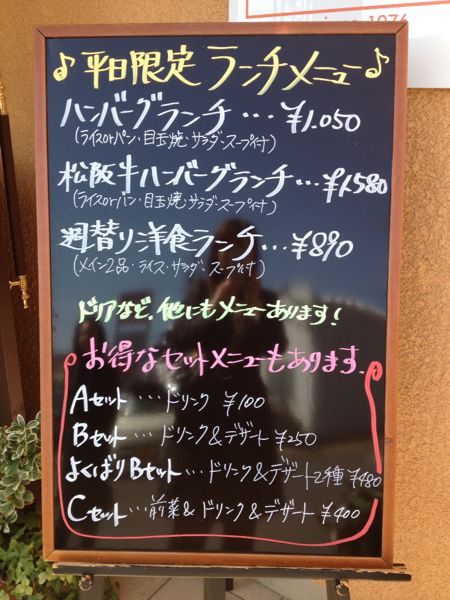 since 1976
♪平日限定 ランチメニュー♪
ハンバーグランチ…¥1.050
(ライスorパン・目玉焼・サラダ・スープ付)
松阪牛ハンバーグランチ…¥1.580
(ライスorパン・目玉焼・サラダ・スープ付)
週替り洋食ランチ…¥890
(メイン2品・ライス・サラダ・スープ付)
ドリアなど、他にもメニューあります!
お得なセットメニューもあります。
Aセット…ドリンク ¥100
Bセット…ドリンク&デザート ¥250
よくばりBセット…ドリンク&デザート2種 ¥480
Cセット…前菜&ドリンク&デザート ¥400